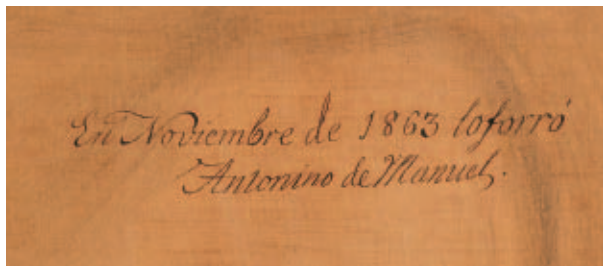 En Noviembre de 1863 loforró
Antonino de Manuel.